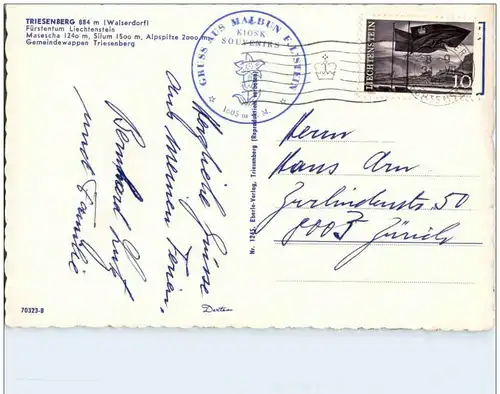 TRIESENBERG 884 m (Walserdorf)
Fürstentum Liechtenstein
Masescha 1240 m, Silum 1500 m, Alpspitze 2000 m
Gemeindewappen Triesenberg
GRUSS AUS MALBUN F. L'STEIN
KIOSK
SOUVENIRS
1605 m M.
LIECHTENSTEIN
10
Herzliche Grüsse
aus meinen Ferien,
Bernhard
und Familie
Nr. 1255 Eberle-Verlag, Triesenberg (Reproduktion verboten)
Herrn
Hans Arn
Zurlindenstr. 50
8003 Zürich
70323-B